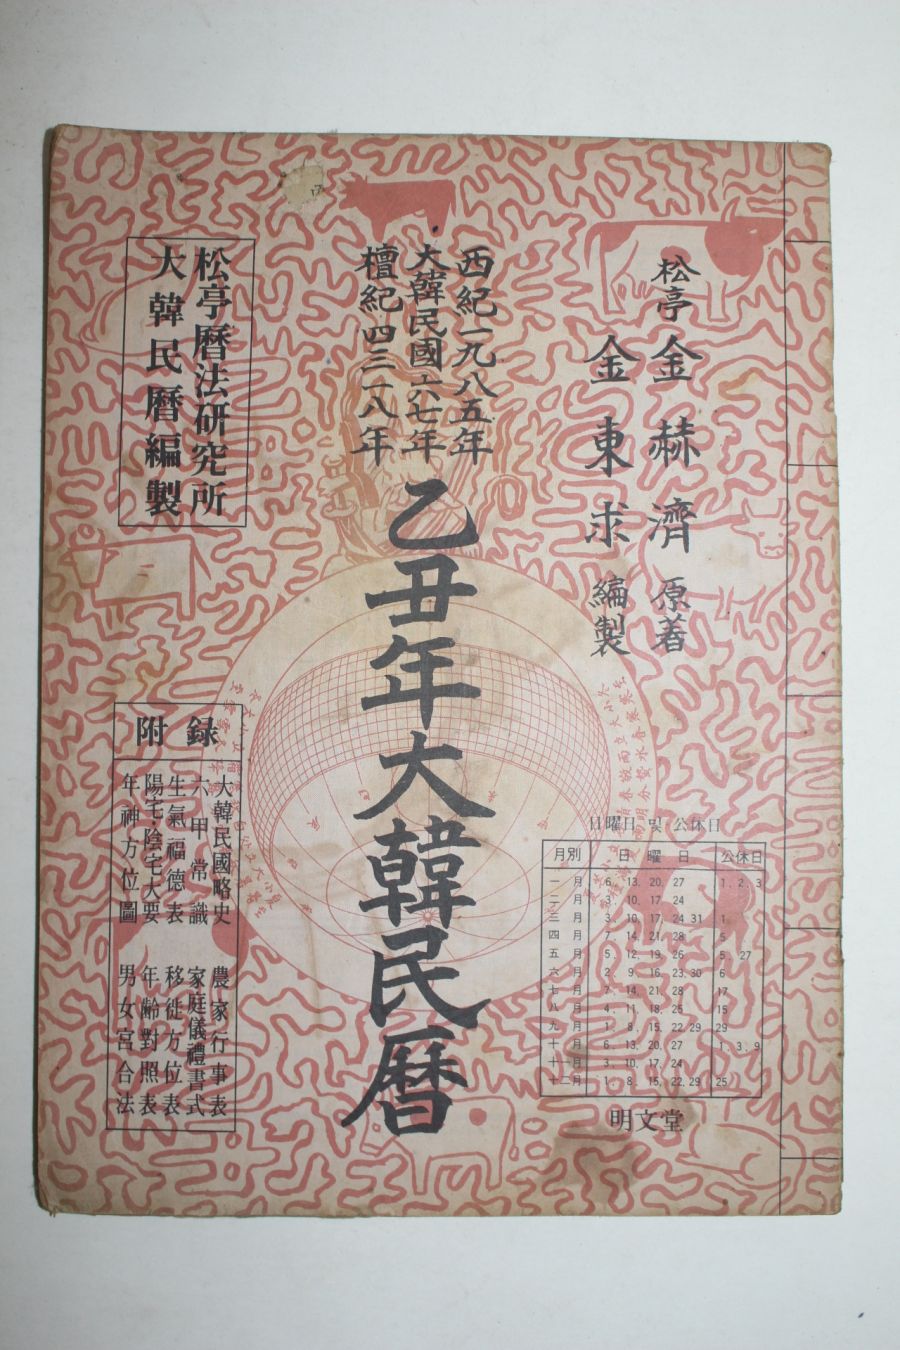 松亭 金赫濟 原著
金東求 編製
西紀一九八五年
大韓民國六七年
檀紀四三一八年
乙丑年大韓民曆
松亭曆法研究所
大韓民曆編製
附錄
大韓民國略史
六甲常識
生氣福德表
陽宅·陰宅大要
年神方位圖
農家行事表
家庭儀禮書式
移徙方位表
年齡對照表
男女宮合法
日曜日 및 公休日
月別 日曜日 公休日
一月 6. 13. 20. 27 1. 2. 3
二月 3. 10. 17. 24
三月 3. 10. 17. 24 31 1
四月 7. 14. 21. 28 5
五月 5. 12. 19. 26 5. 27
六月 2. 9. 16. 23. 30 6
七月 7. 14. 21. 28 17
八月 4. 11. 18. 25 15
九月 1. 8. 15. 22 29 29
十月 6. 13. 20. 27 1. 3. 9
十一月 3. 10. 17. 24
十二月 1. 8. 15. 22. 29 25
明文堂